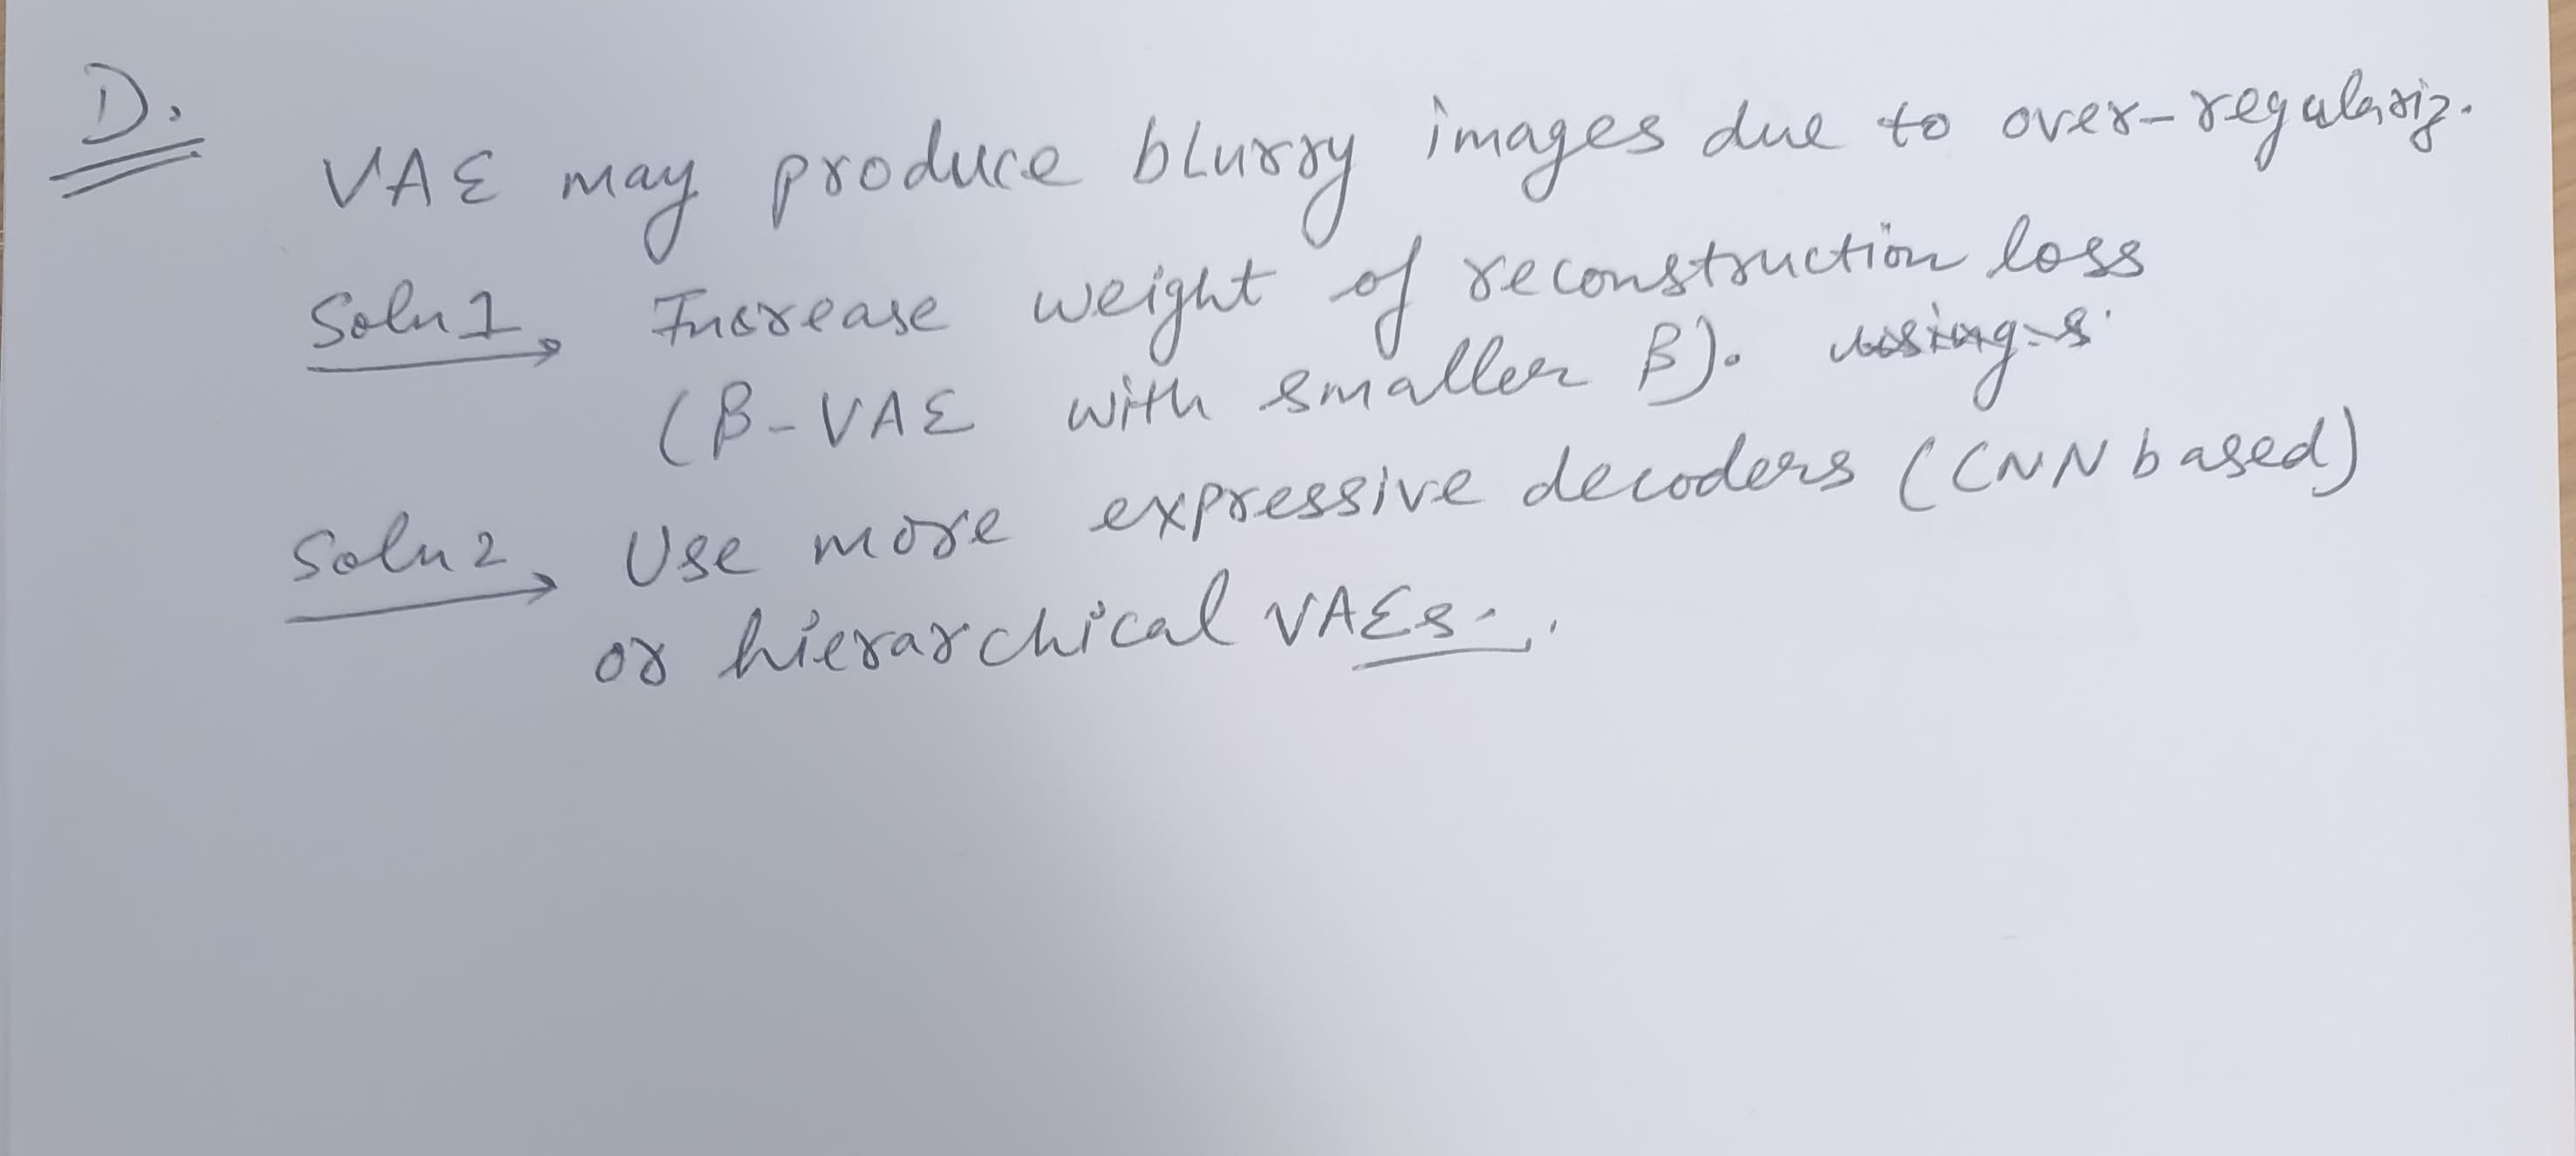 D.
VAE may produce blurry images due to over-regulariz.
Soln 1 → Increase weight of reconstruction loss
(β-VAE with smaller β). using
Soln 2 → Use more expressive decoders (CNN based)
or hierarchical VAEs.